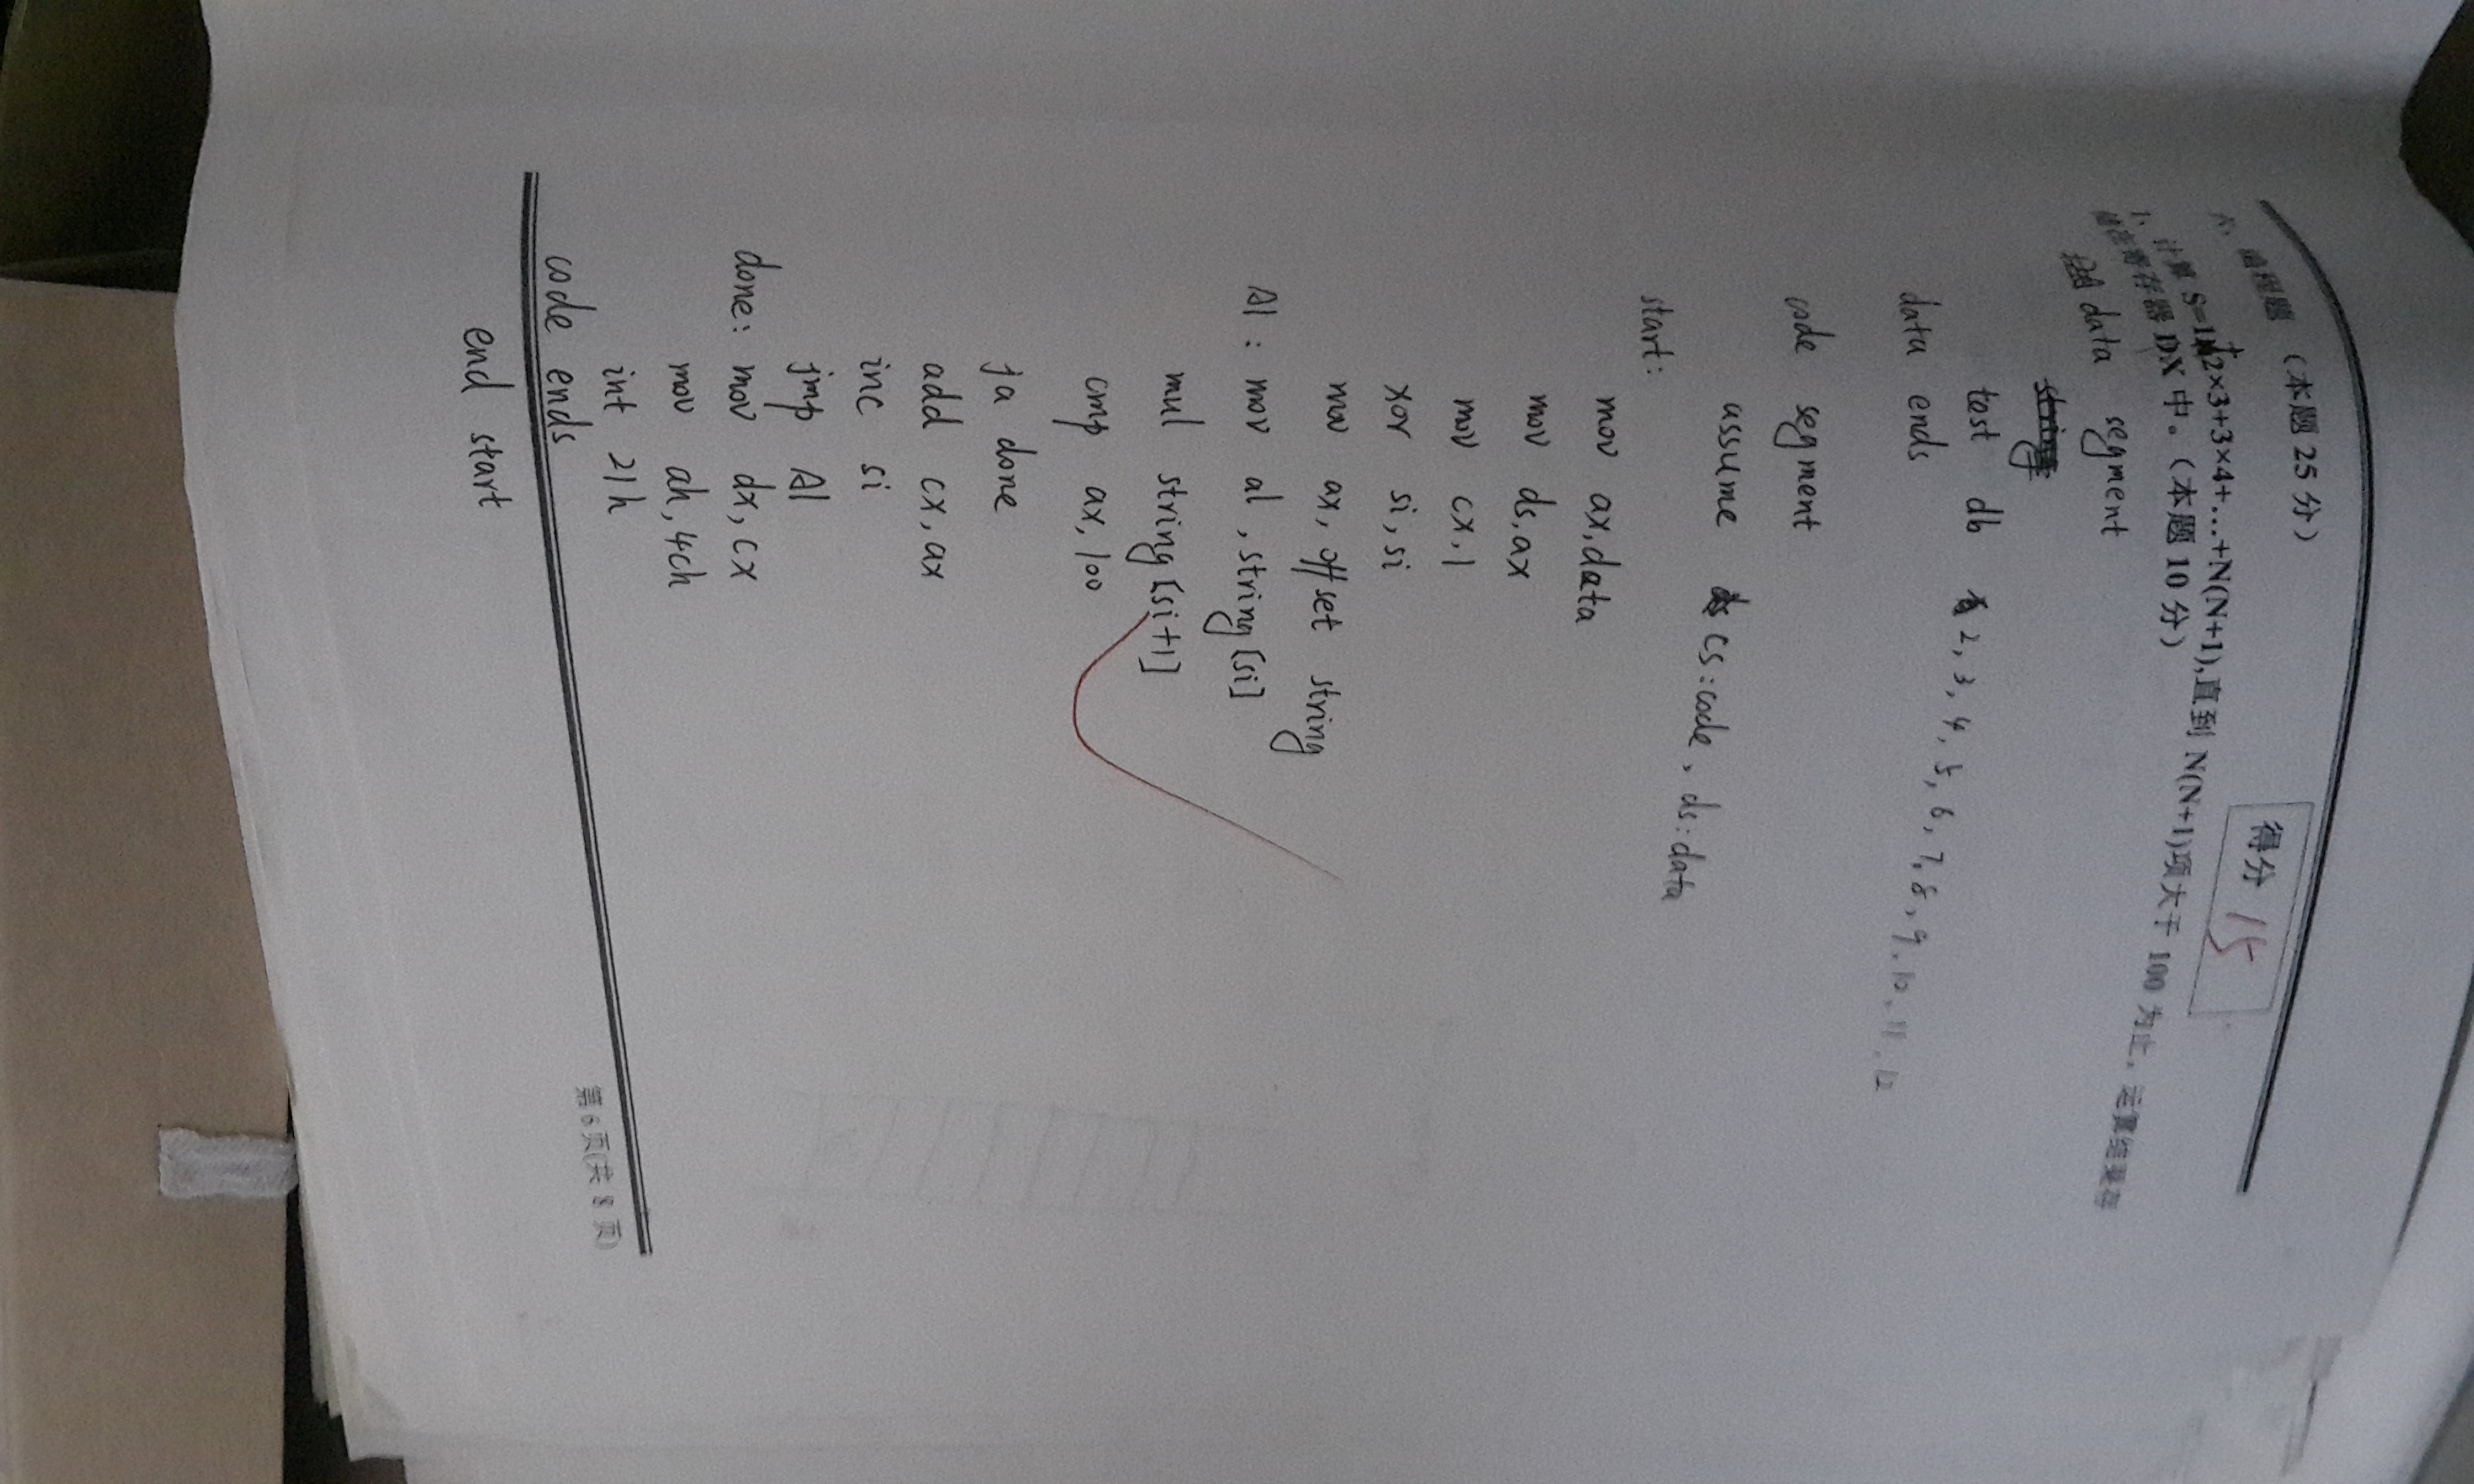 六、编程题 （本题 25 分）
得分 15
1、计算 S=1+2×3+3×4+…+N(N+1),直到 N(N+1)项大于 100 为止，运算结果存
储在寄存器 DX 中。（本题 10 分）
data segment
string
test db 2, 3, 4, 5, 6, 7, 8, 9, 10, 11, 12
data ends
code segment
assume cs:code, ds:data
start:
mov ax,data
mov ds,ax
mov cx,1
xor si,si
mov ax, offset string
A1: mov al, string[si]
mul string[si+1]
cmp ax,100
ja done
add cx,ax
inc si
jmp A1
done: mov dx,cx
mov ah,4ch
int 21h
第 6 页(共 8 页)
code ends
end start